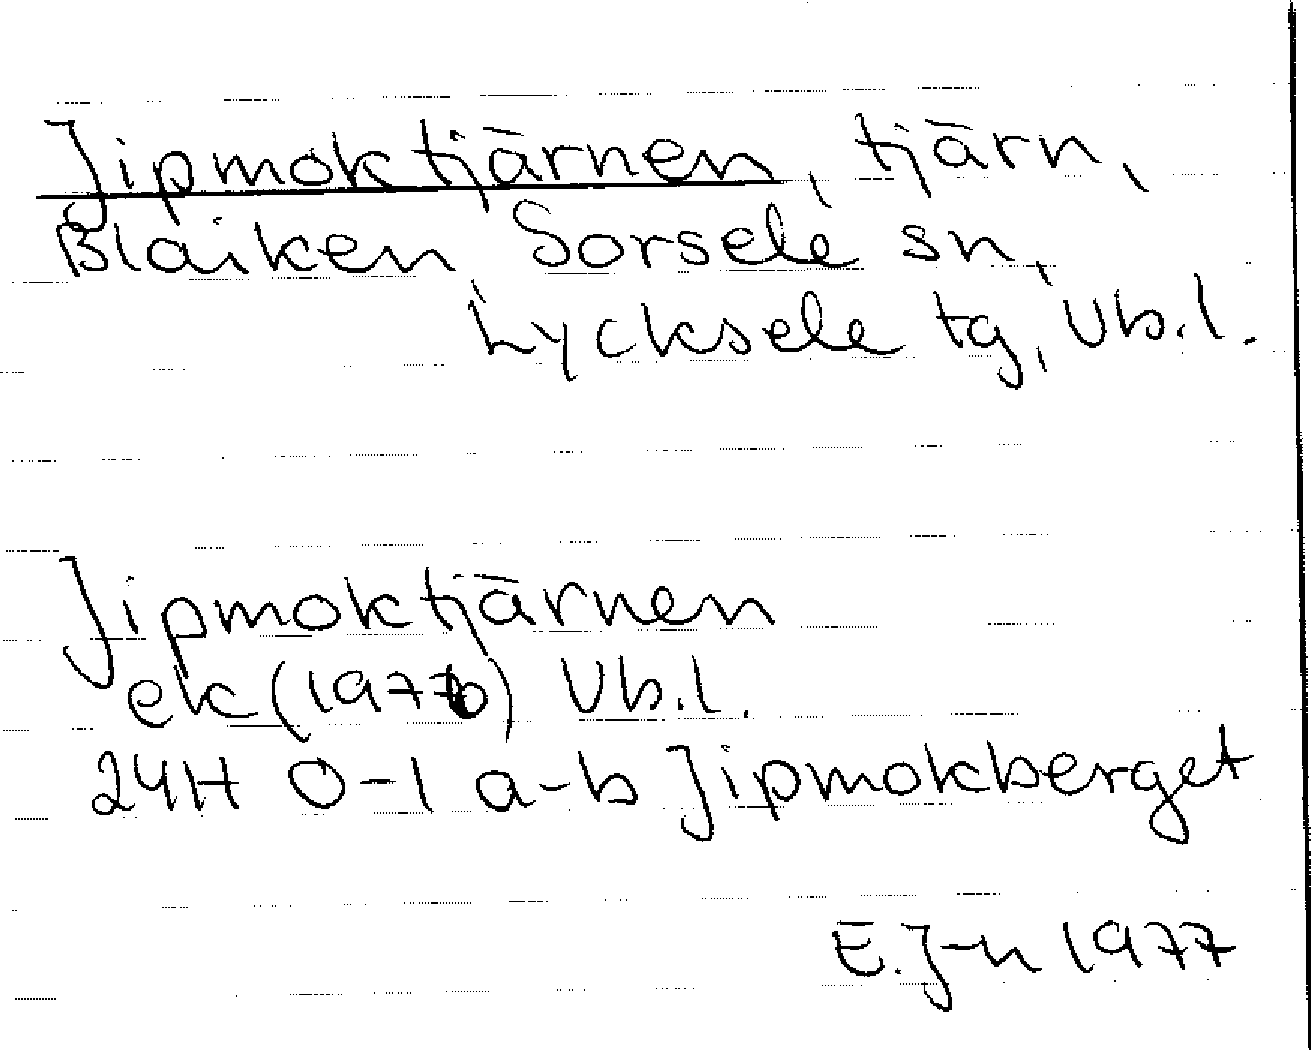 Jipmoktjärnen, tjärn,
Blaiken, Sorsele sn,
Lycksele tg, Vb.l.
Jipmoktjärnen
ek (1976) Vb.l.
24H 0-1 a-b Jipmokberget
E.J-n 1977